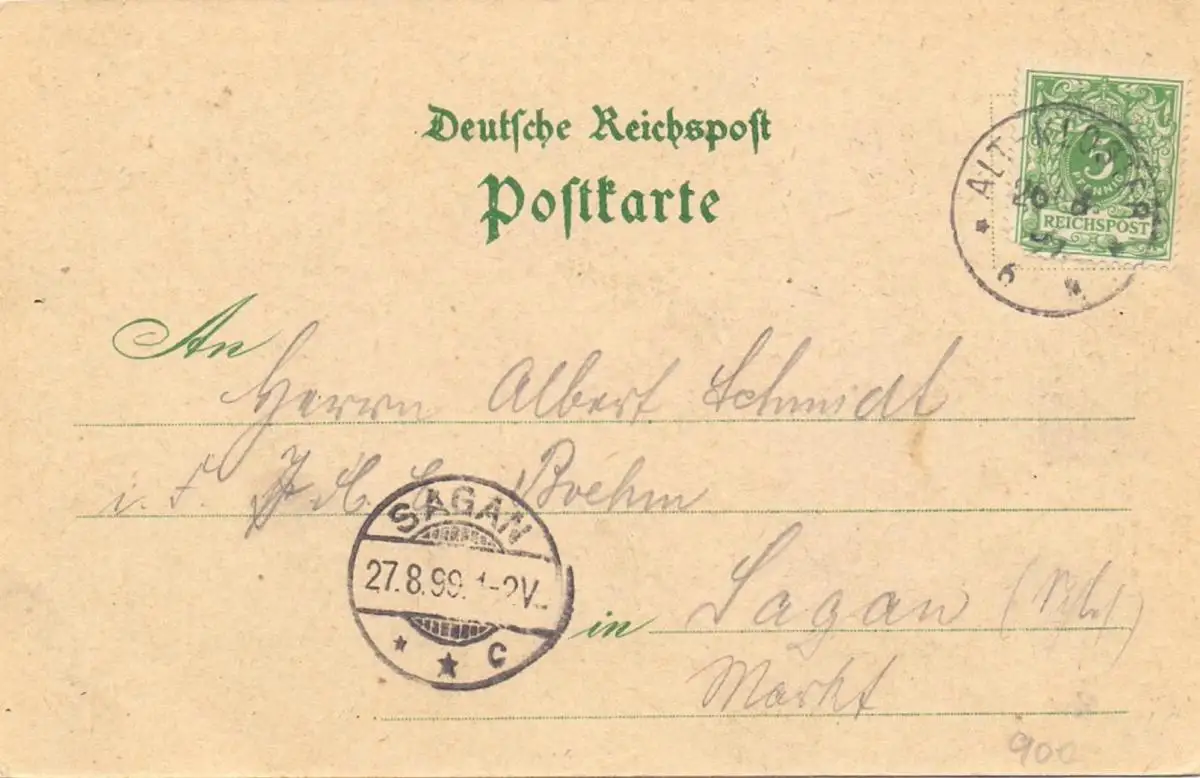 Deutsche Reichspost
Postkarte
5
PFENNIG
REICHSPOST
ALT-KLOSTER
26 8
99
6
An
Herrn Albert Schmidt
i. F. Boehm
SAGAN
27.8.99. 1-2V.
C
in Sagan (Schl)
Markt
900